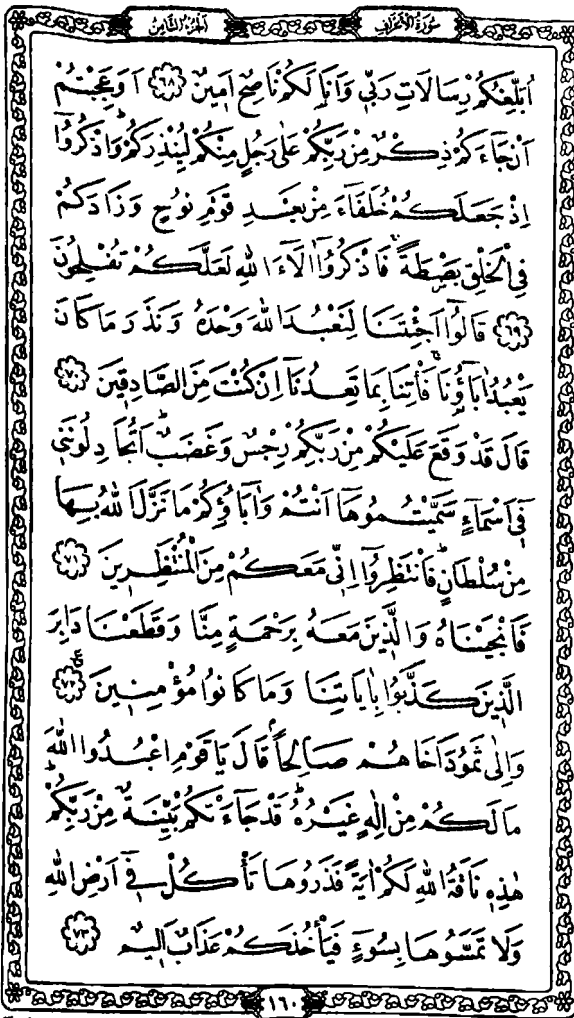 سُورَةُ الْأَعْرَافِ
اَلْجُزْءُ الثَّامِنُ
اُبَلِّغُكُمْ رِسَالَاتِ رَبّ۪ي وَاَنَا۬ لَكُمْ نَاصِحٌ اَم۪ينٌ ﴿٦٨﴾ اَوَعَجِبْتُمْ
اَنْ جَٓاءَكُمْ ذِكْرٌ مِنْ رَبِّكُمْ عَلٰى رَجُلٍ مِنْكُمْ لِيُنْذِرَكُمْۜ وَاذْكُرُٓوا
اِذْ جَعَلَكُمْ خُلَفَٓاءَ مِنْ بَعْدِ قَوْمِ نُوحٍ وَزَادَكُمْ
فِي الْخَلْقِ بَصْۣطَةًۚ فَاذْكُرُٓوا اٰلَٓاءَ اللّٰهِ لَعَلَّكُمْ تُفْلِحُونَ
﴿٦٩﴾ قَالُٓوا اَجِئْتَنَا لِنَعْبُدَ اللّٰهَ وَحْدَهُ وَنَذَرَ مَا كَانَ
يَعْبُدُ اٰبَٓاؤُ۬نَاۚ فَأْتِنَا بِمَا تَعِدُنَٓا اِنْ كُنْتَ مِنَ الصَّادِق۪ينَ ﴿٧٠﴾
قَالَ قَدْ وَقَعَ عَلَيْكُمْ مِنْ رَبِّكُمْ رِجْسٌ وَغَضَبٌۜ اَتُجَادِلُونَن۪ي
ف۪ٓي اَسْمَٓاءٍ سَمَّيْتُمُوهَٓا اَنْتُمْ وَاٰبَٓاؤُ۬كُمْ مَا نَزَّلَ اللّٰهُ بِهَا
مِنْ سُلْطَانٍۜ فَانْتَظِرُٓوا اِنّ۪ي مَعَكُمْ مِنَ الْمُنْتَظِر۪ينَ ﴿٧١﴾
فَاَنْجَيْنَاهُ وَالَّذ۪ينَ مَعَهُ بِرَحْمَةٍ مِنَّا وَقَطَعْنَا دَابِرَ
الَّذ۪ينَ كَذَّبُوا بِاٰيَاتِنَا وَمَا كَانُوا مُؤْمِن۪ينَ۟ ﴿٧٢﴾
وَاِلٰى ثَمُودَ اَخَاهُمْ صَالِحاًۢ قَالَ يَا قَوْمِ اعْبُدُوا اللّٰهَ
مَا لَكُمْ مِنْ اِلٰهٍ غَيْرُهُۜ قَدْ جَٓاءَتْكُمْ بَيِّنَةٌ مِنْ رَبِّكُمْۜ
هٰذِه۪ نَاقَةُ اللّٰهِ لَكُمْ اٰيَةً فَذَرُوهَا تَأْكُلْ ف۪ٓي اَرْضِ اللّٰهِ
وَلَا تَمَسُّوهَا بِسُٓوءٍ فَيَأْخُذَكُمْ عَذَابٌ اَل۪يمٌ ﴿٧٣﴾
١٦٠